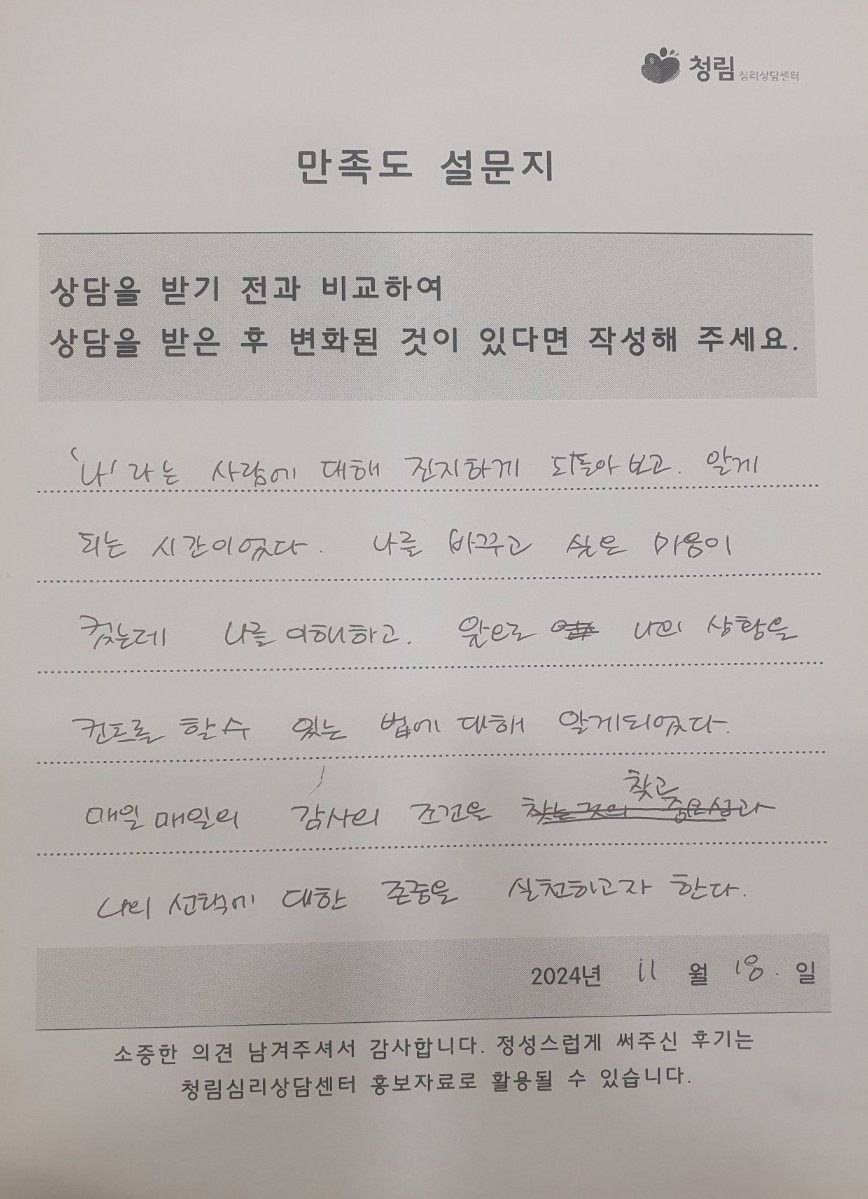 청림 심리상담센터
만족도 설문지
상담을 받기 전과 비교하여
상담을 받은 후 변화된 것이 있다면 작성해 주세요.
'나'라는 사람에 대해 진지하게 되돌아 보고. 알게
되는 시간이었다. 나를 바꾸고 싶은 마음이
컸는데 나를 이해하고. 앞으로 나의 상황을
컨트롤 할 수 있는 법에 대해 알게되었다.
매일 매일의 감사의 조건을 찾고
나의 선택에 대한 존중을 실천하고자 한다.
2024년 11 월 18. 일
소중한 의견 남겨주셔서 감사합니다. 정성스럽게 써주신 후기는
청림심리상담센터 홍보자료로 활용될 수 있습니다.